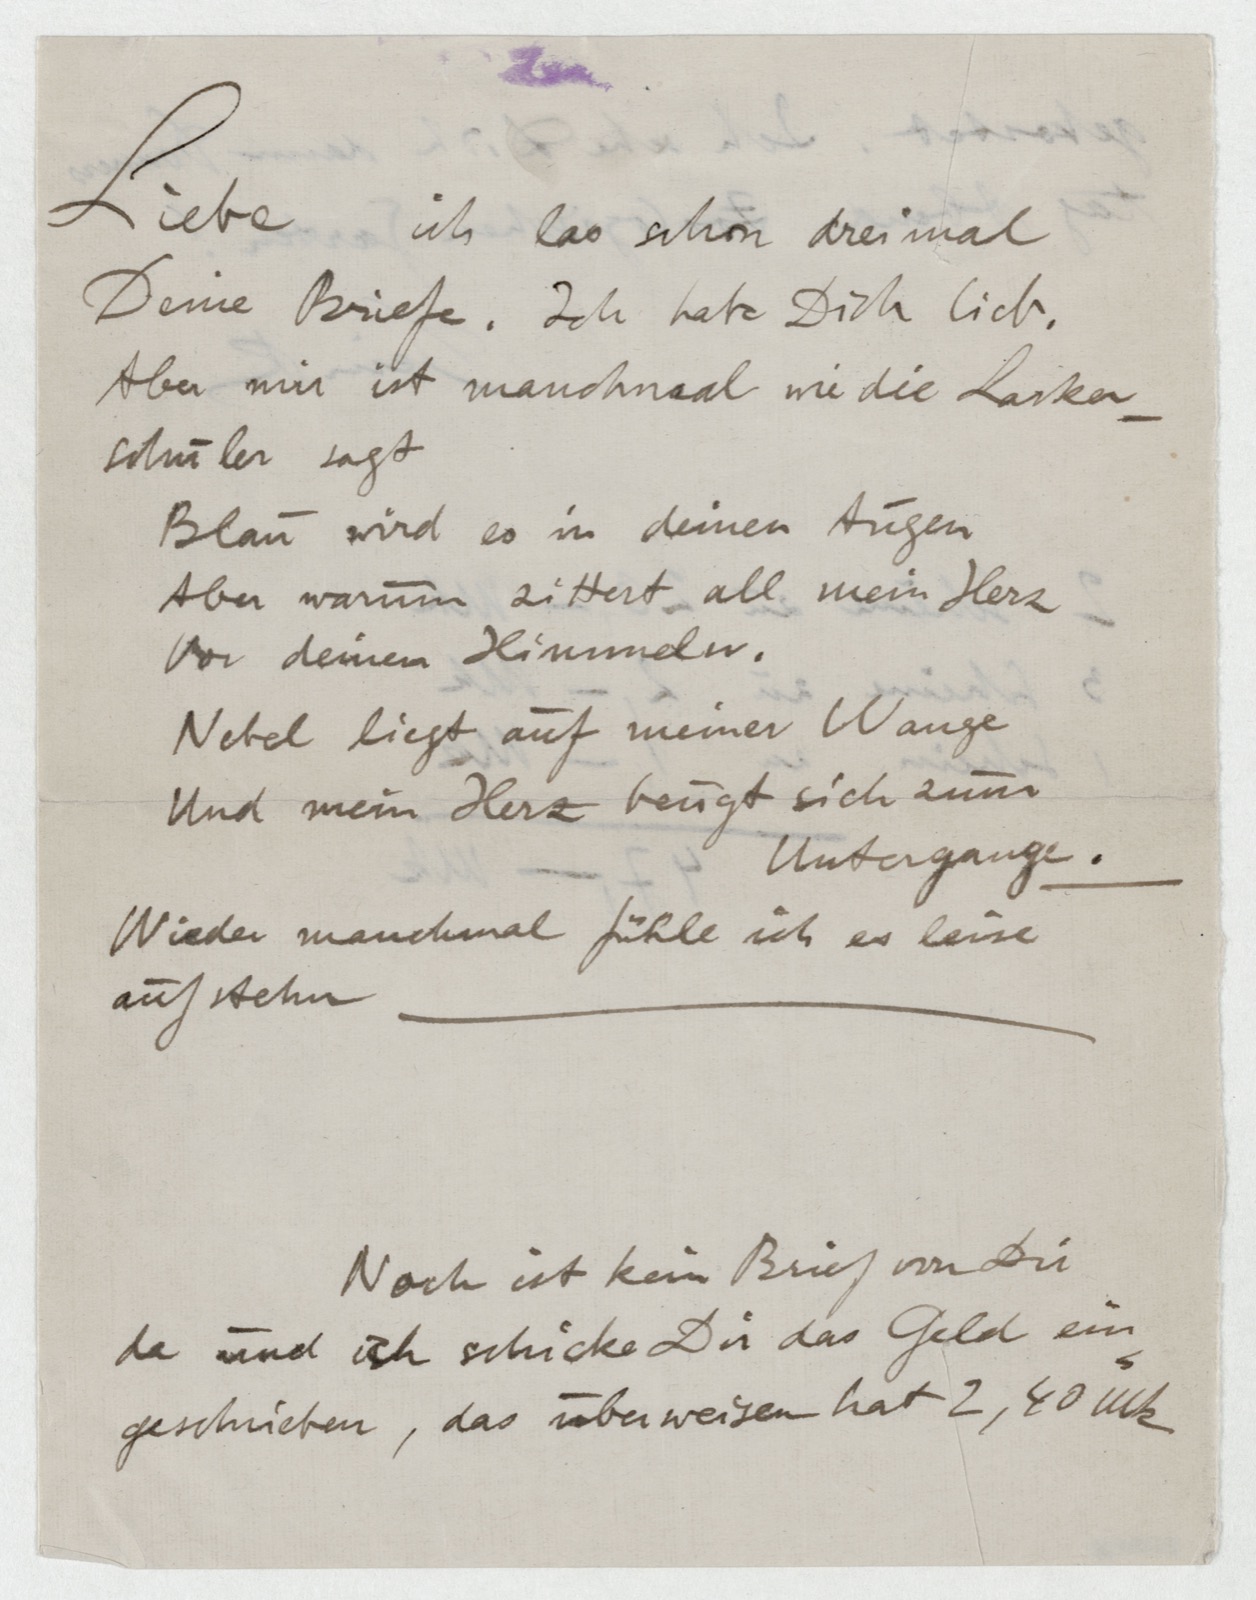 Liebe ich las schon dreimal
Deine Briefe. Ich habe Dich lieb.
Aber mir ist manchmaal wie die Lasker-
schüler sagt
Blau wird es in deinen Augen
Aber warum zittert all mein Herz
Vor deinen Himmeln.
Nebel liegt auf meiner Wange
Und mein Herz beugt sich zum
Untergange.
Wieder manchmal fühle ich es leise
aufstehn
Noch ist kein Brief von Dir
da und ich schicke Dir das Geld ein
geschrieben, das überweisen hat 2,40 Mk